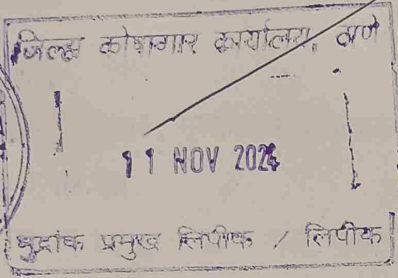 जिल्हा कोषागार कार्यालय, ठाणे
11 NOV 2024
मुद्रांक प्रमुख लिपीक / लिपीक